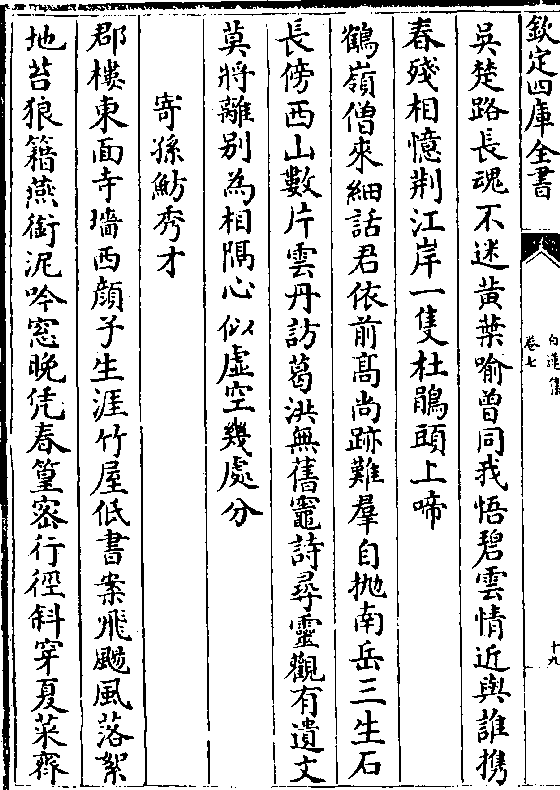 欽定四庫全書
白蓮集
卷七
十九
吳楚路長魂不迷黄葉喻曾同我悟碧雲情近與誰携
春殘相憶荆江岸一隻杜鵑頭上啼
鶴嶺僧來細話君依前髙尚跡難羣自抛南岳三生石
長傍西山數片雲丹訪葛洪無舊竈詩尋靈觀有遺文
莫將離别為相隔心似虚空幾處分
寄孫魴秀才
郡樓東面寺墻西顔子生涯竹屋低書案飛颸風落絮
地苔狼籍燕銜泥吟窓晚凭春篁宻行徑斜穿夏菜齊